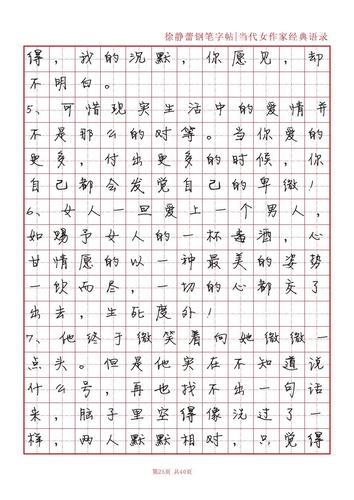 徐静蕾钢笔字帖|当代女作家经典语录
得，我的沉默，你愿见，却
不明白。
5、可惜现实生活中的爱情并
不是那么的对等。当你爱的
更多，付出更多的时候，你
自己都会发觉自己的卑微！
6、女人一旦爱上一个男人，
如赐予女人的一杯毒酒，心
甘情愿的以一种最美的姿势
一饮而尽，一切的心都交了
出去，生死度外！
7、他终于微笑着向她微微一
点头。但是他实在不知道说
什么号，再也找不出一句话
来，脑子里空得像洗过了一
样，两人默默相对，只觉得
第25页 共40页